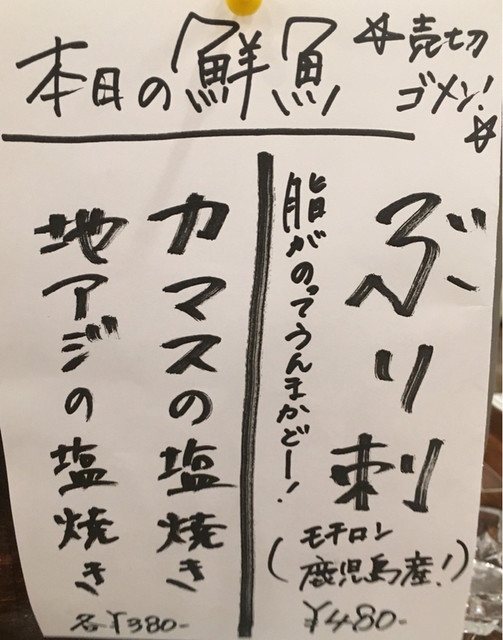 本日の鮮魚
☆売切
ゴメン!☆
ぶり刺
脂がのってうんまかどー!
(モチロン
鹿児島産!)
¥480-
カマスの塩焼き
地アジの塩焼き
各¥380-